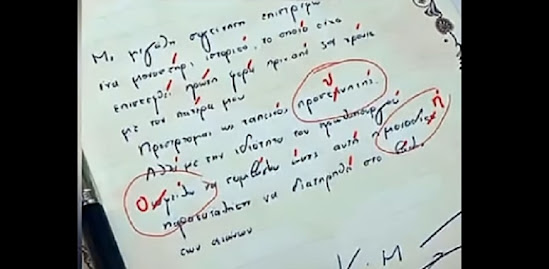 Με μεγάλη συγκίνηση επιστρέφω
ένα μοναστήρι ιστορικό, το οποίο είχα
επισκεφθεί πρώτη φορά πριν από 30 χρόνια
με τον πατέρα μου
Προσέρχομαι ως ταπεινός προσκηνητής.
υ
Αλλά με την ιδιότητα του πρωθυπουργού
ή
να συμβάλω ώστε αυτή η
παρακαταθήκη να διατηρηθεί στο
των αιώνων
Κ. Μ